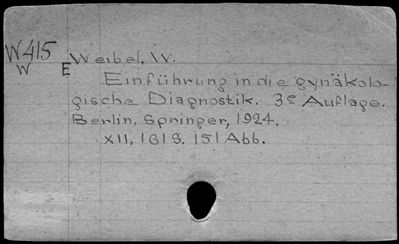 W415
W E
Weibel, W.
Einführung in die gynäkolo-
gische Diagnostik. 3e Auflage.
Berlin, Springer, 1924.
XII, 161 S. 151 Abb.